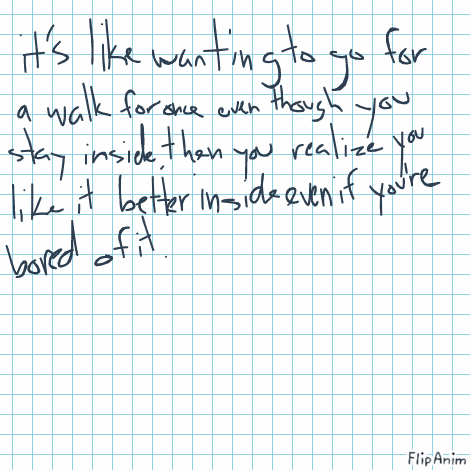 it's like wanting to go for
a walk for once even though you
stay inside, then you realize you
like it better inside even if you're
bored of it.
FlipAnim